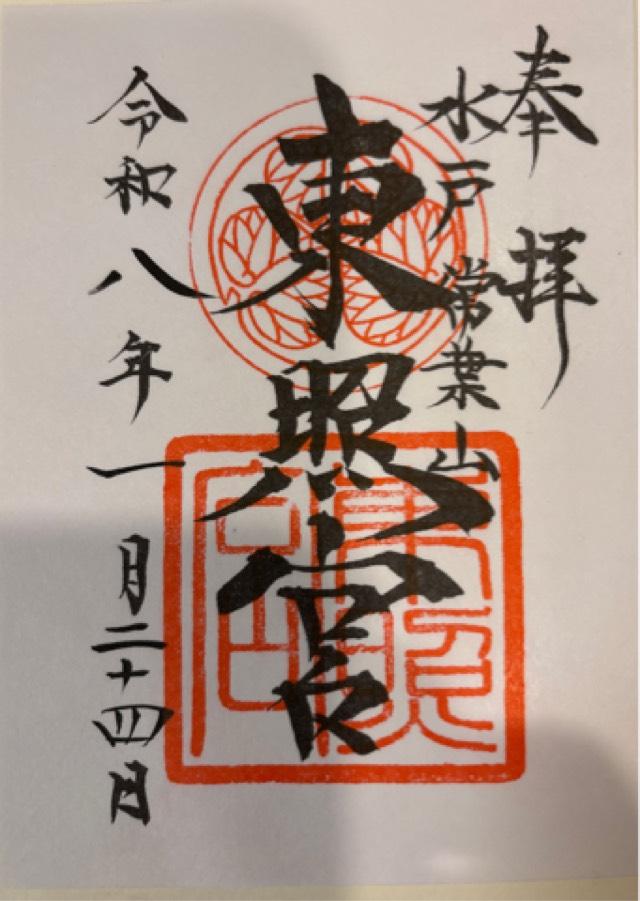 奉拝
水戸常葉山
東照宮
令和八年一月二十四日